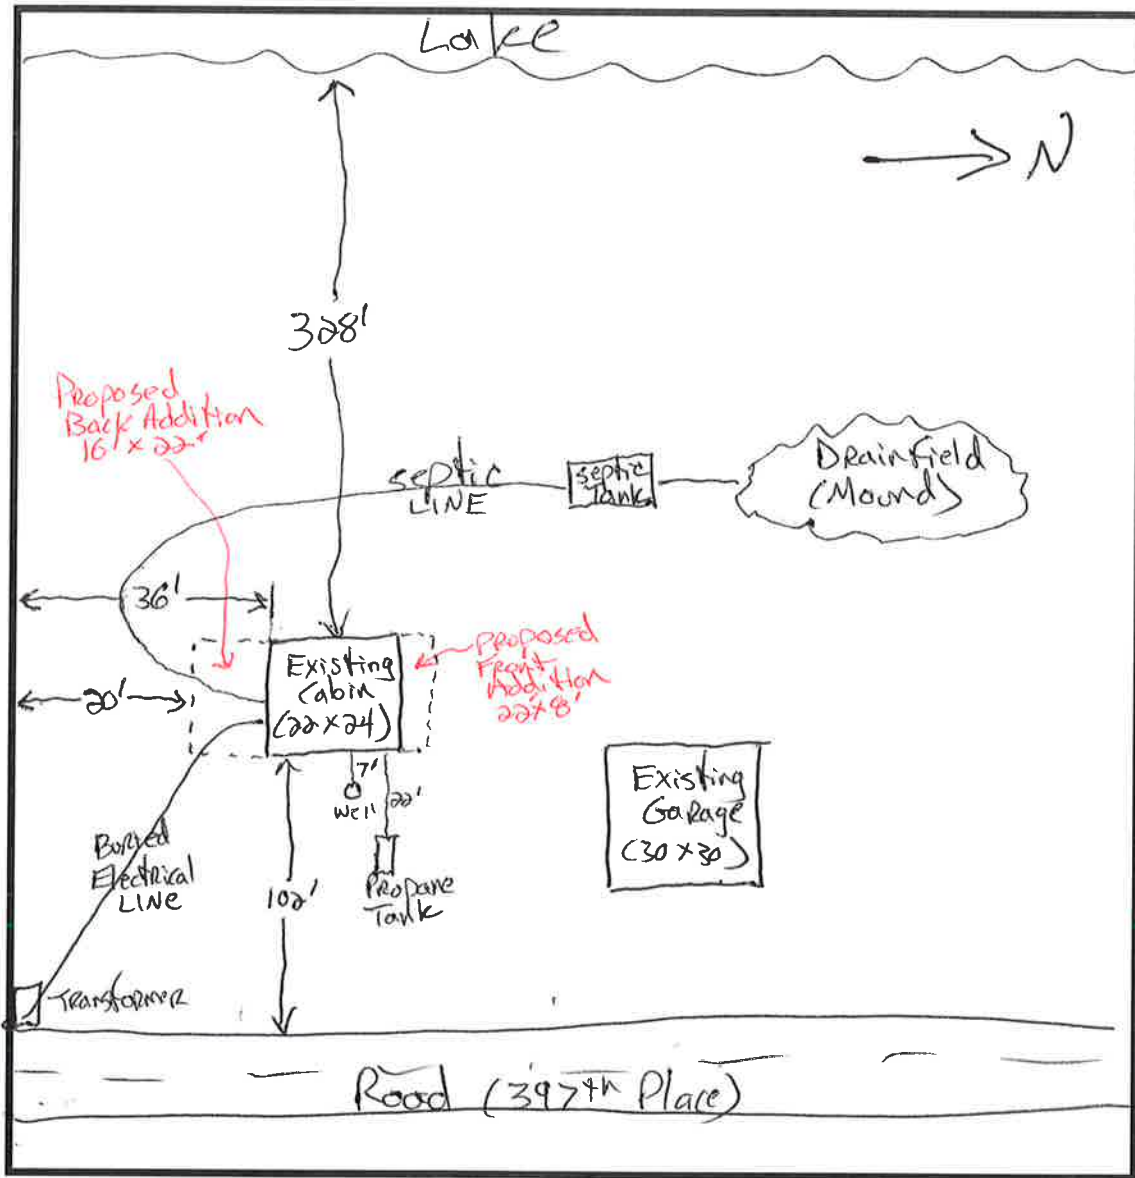 Lake
N
328'
Proposed
Back Addition
16' x 22'
septic
LINE
septic
Tank
Drainfield
(Mound)
36'
Existing
Cabin
(22 x 24)
Proposed
Front
Addition
22x8'
20'
7'
well
22'
Propane
Tank
Existing
Garage
(30 x 30)
Buried
Electrical
LINE
102'
Transformer
Road (397th Place)